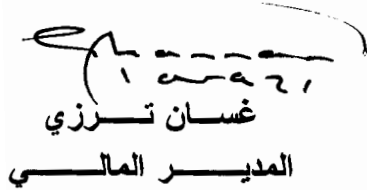 غسان ترزي
المدير المالي